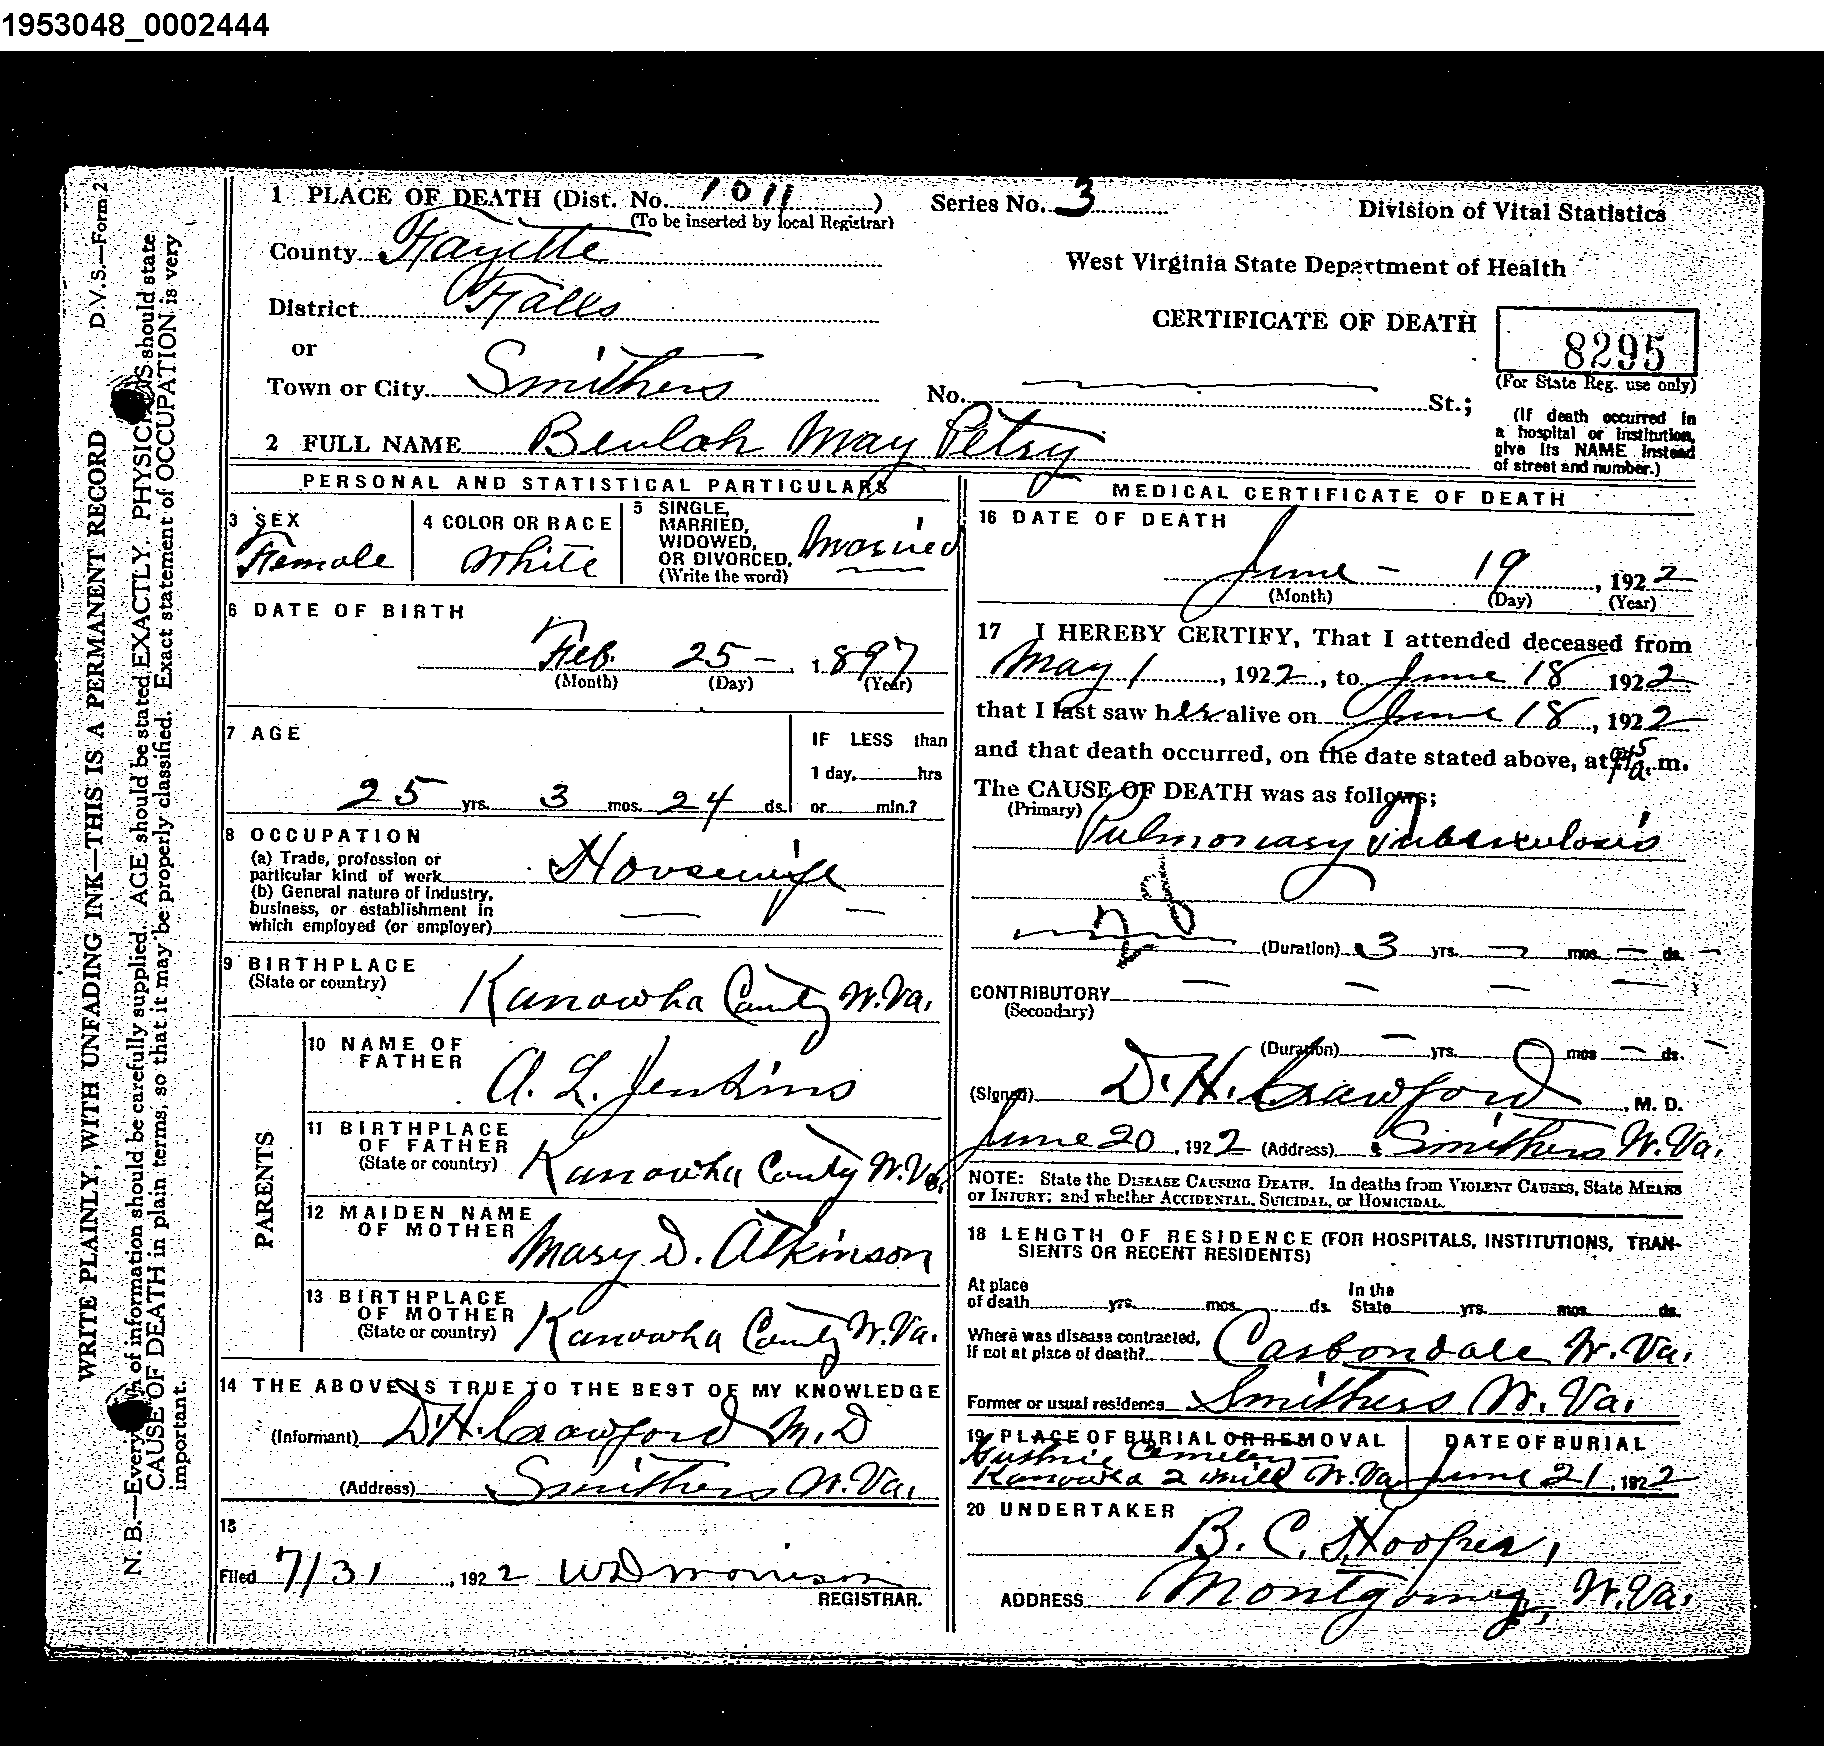 1953048_0002444
D.V.S.—Form 2
WRITE PLAINLY, WITH UNFADING INK—THIS IS A PERMANENT RECORD
N. B.—Every of information should be carefully supplied. AGE should be stated EXACTLY. PHYSICIANS should state
CAUSE OF DEATH in plain terms, so that it may be properly classified. Exact statement of OCCUPATION is very
important.
1 PLACE OF DEATH (Dist. No. 1011 )
(To be inserted by local Registrar)
Series No. 3
Division of Vital Statistics
County Fayette
West Virginia State Department of Health
District Falls
CERTIFICATE OF DEATH
8295
(For State Reg. use only)
or
Town or City Smithers
No. St.;
(If death occurred in
a hospital or institution,
give its NAME instead
of street and number.)
2 FULL NAME Beulah May Petry
PERSONAL AND STATISTICAL PARTICULARS
3 SEX
Female
4 COLOR OR RACE
White
5 SINGLE,
MARRIED,
WIDOWED,
OR DIVORCED.
(Write the word)
Married
6 DATE OF BIRTH
Feb. 25 – 1897
(Month) (Day) (Year)
7 AGE
25 yrs. 3 mos. 24 ds.
IF LESS than
1 day, hrs
or min.?
8 OCCUPATION
(a) Trade, profession or
particular kind of work
Housewife
(b) General nature of industry,
business, or establishment in
which employed (or employer)
9 BIRTHPLACE
(State or country)
Kanawha County W.Va.
PARENTS
10 NAME OF
FATHER
A. L. Jenkins
11 BIRTHPLACE
OF FATHER
(State or country)
Kanawha County W.Va.
12 MAIDEN NAME
OF MOTHER
Mary D. Atkinson
13 BIRTHPLACE
OF MOTHER
(State or country)
Kanawha County W.Va.
14 THE ABOVE IS TRUE TO THE BEST OF MY KNOWLEDGE
(Informant) D.H. Crawford M.D
(Address) Smithers W.Va.
15
Filed 7/31, 1922 WD Morrison
REGISTRAR.
MEDICAL CERTIFICATE OF DEATH
16 DATE OF DEATH
June – 19, 1922
(Month) (Day) (Year)
17 I HEREBY CERTIFY, That I attended deceased from
May 1, 1922, to June 18 1922
that I last saw her alive on June 18, 1922
and that death occurred, on the date stated above, at m.
The CAUSE OF DEATH was as follows;
(Primary)
Pulmonary Tuberculosis
(Duration) 3 yrs. – mos. – ds.
CONTRIBUTORY
(Secondary)
(Duration) – yrs. mos – ds.
(Signed) D.H. Crawford, M. D.
June 20, 1922 (Address) Smithers W.Va.
NOTE: State the DISEASE CAUSING DEATH. In deaths from VIOLENT CAUSES, State MEANS
or INJURY; and whether ACCIDENTAL, SUICIDAL, or HOMICIDAL.
18 LENGTH OF RESIDENCE (FOR HOSPITALS, INSTITUTIONS, TRAN-
SIENTS OR RECENT RESIDENTS)
At place
of death yrs. mos. ds.
In the
State yrs. mos. ds.
Where was disease contracted,
if not at place of death?
Carbondale W.Va.
Former or usual residence Smithers W.Va.
19 PLACE OF BURIAL OR REMOVAL
Guthrie Cemetery
Kanawha 2 Mile W.Va.
DATE OF BURIAL
June 21, 1922
20 UNDERTAKER
B. C. Hooper,
ADDRESS Montgomery, W.Va.